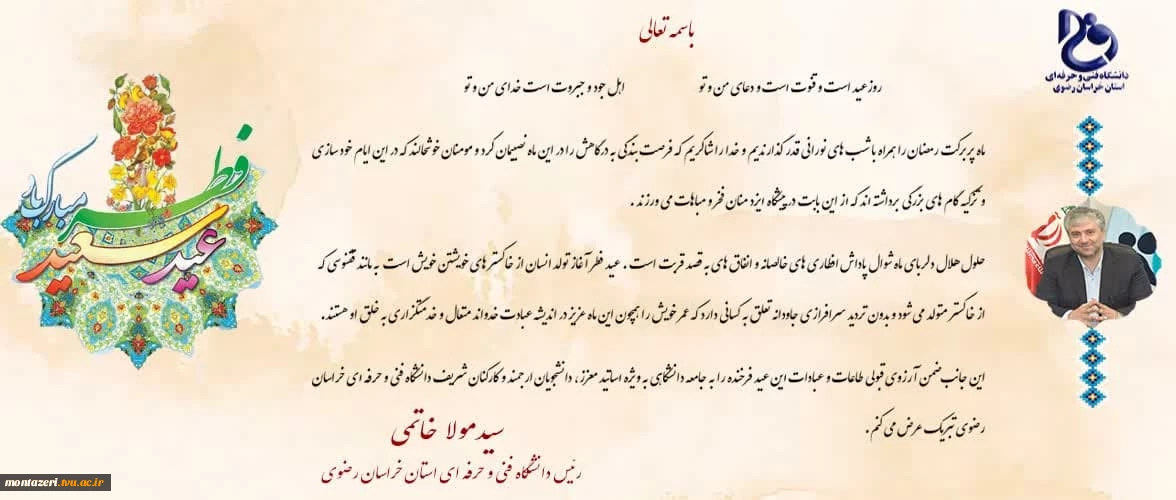 باسمه تعالی
دانشگاه فنی و حرفه‌ای
استان خراسان رضوی
روز عید است و قنوت است و دعای من و تو اهل جود و جبروت است خدای من و تو
ماه پربرکت رمضان را همراه با شب های نورانی قدر گذارندیم و خدا را شاکریم که فرصت بندگی به درگاهش را در این ماه نصیبمان کرد و مومنان خوشحالند که در این ایام خود سازی
و تزکیه گام های بزرگی برداشته اند که از این بابت در پیشگاه ایزد منان فخر و مباهات می ورزند .
حلول هلال دلربای ماه شوال پاداش افطاری های خالصانه و انفاق های به قصد قربت است . عید فطر آغاز تولد انسان از خاکسترهای خویشتن خویش است به مانند ققنوسی که
از خاکستر متولد می شود و بدون تردید سرافرازی جاودانه تعلق به کسانی دارد که عمر خویش را همچون این ماه عزیز در اندیشه عبادت خداوند متعال و خدمتگزاری به خلق او هستند.
این جانب ضمن آرزوی قبولی طاعات و عبادات این عید فرخنده را به جامعه دانشگاهی به ویژه اساتید معزز ، دانشجویان ارجمند و کارکنان شریف دانشگاه فنی و حرفه ای خراسان
رضوی تبریک عرض می کنم .
سید مولا خاتمی
رئیس دانشگاه فنی و حرفه ای استان خراسان رضوی
عید سعید فطر مبارک باد
montazeri.tvu.ac.ir